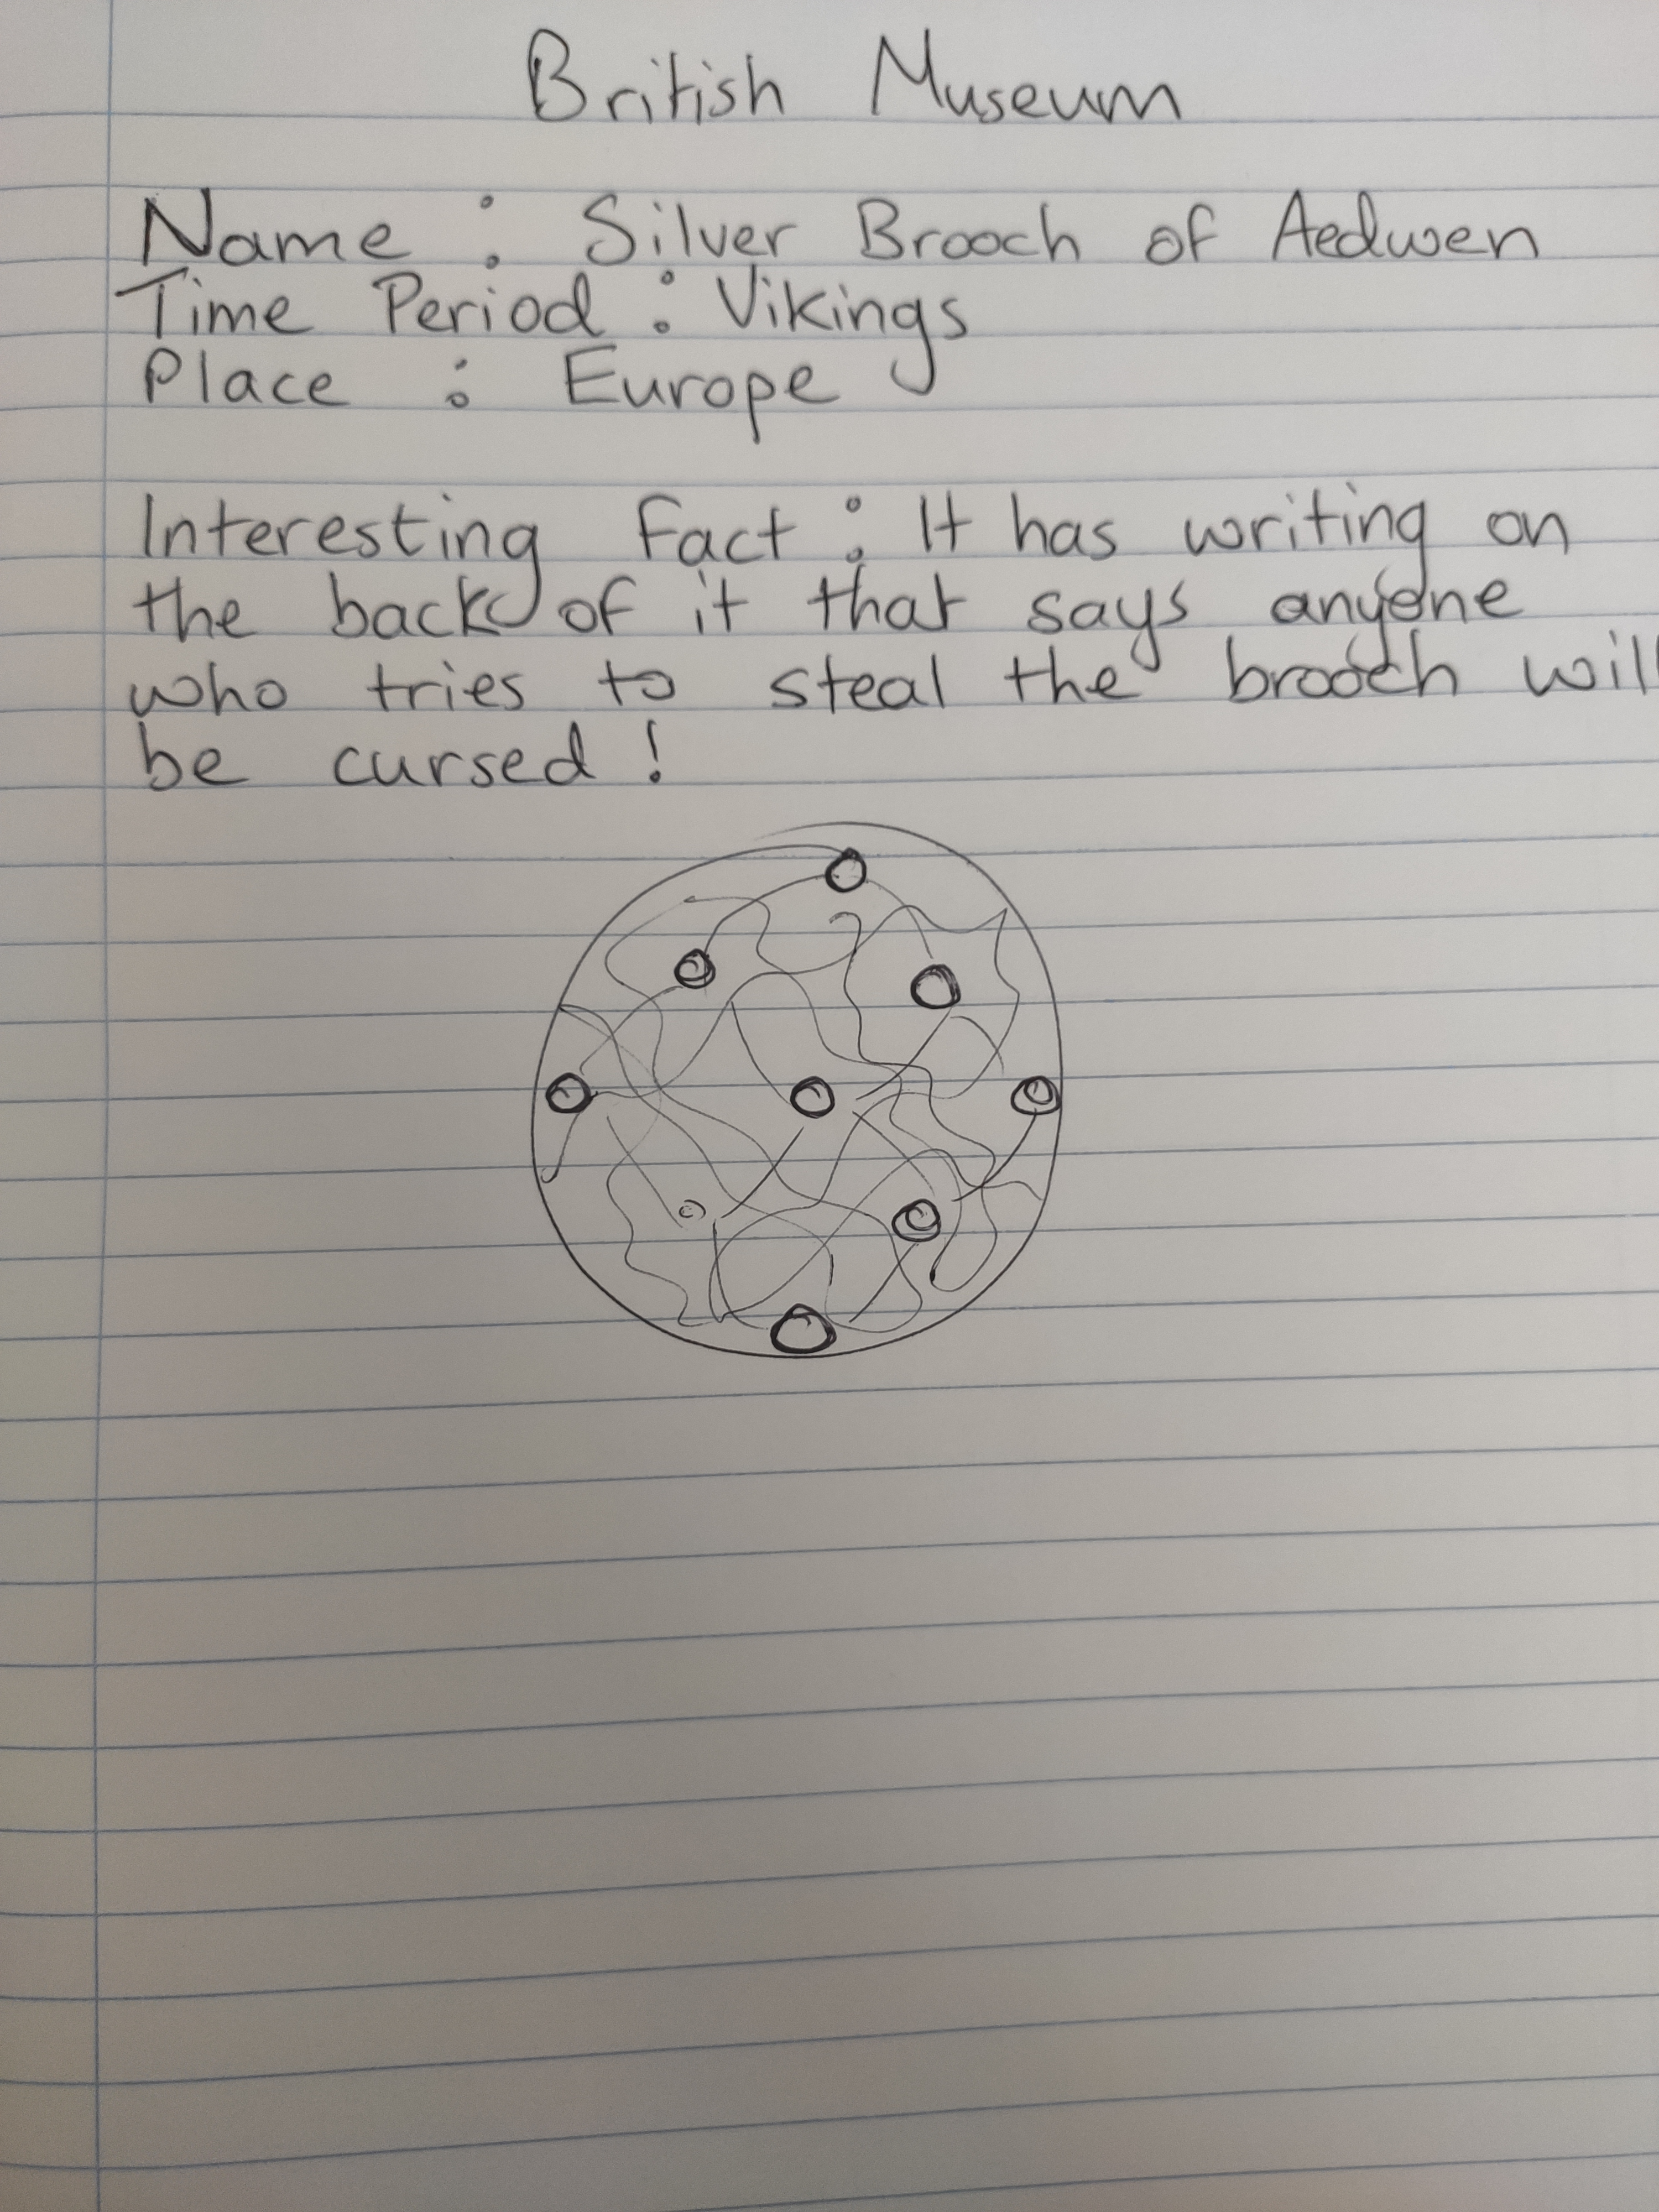 British Museum
Name : Silver Brooch of Aedwen
Time Period : Vikings
Place : Europe
Interesting Fact : It has writing on
the back of it that says anyone
who tries to steal the brooch will
be cursed !